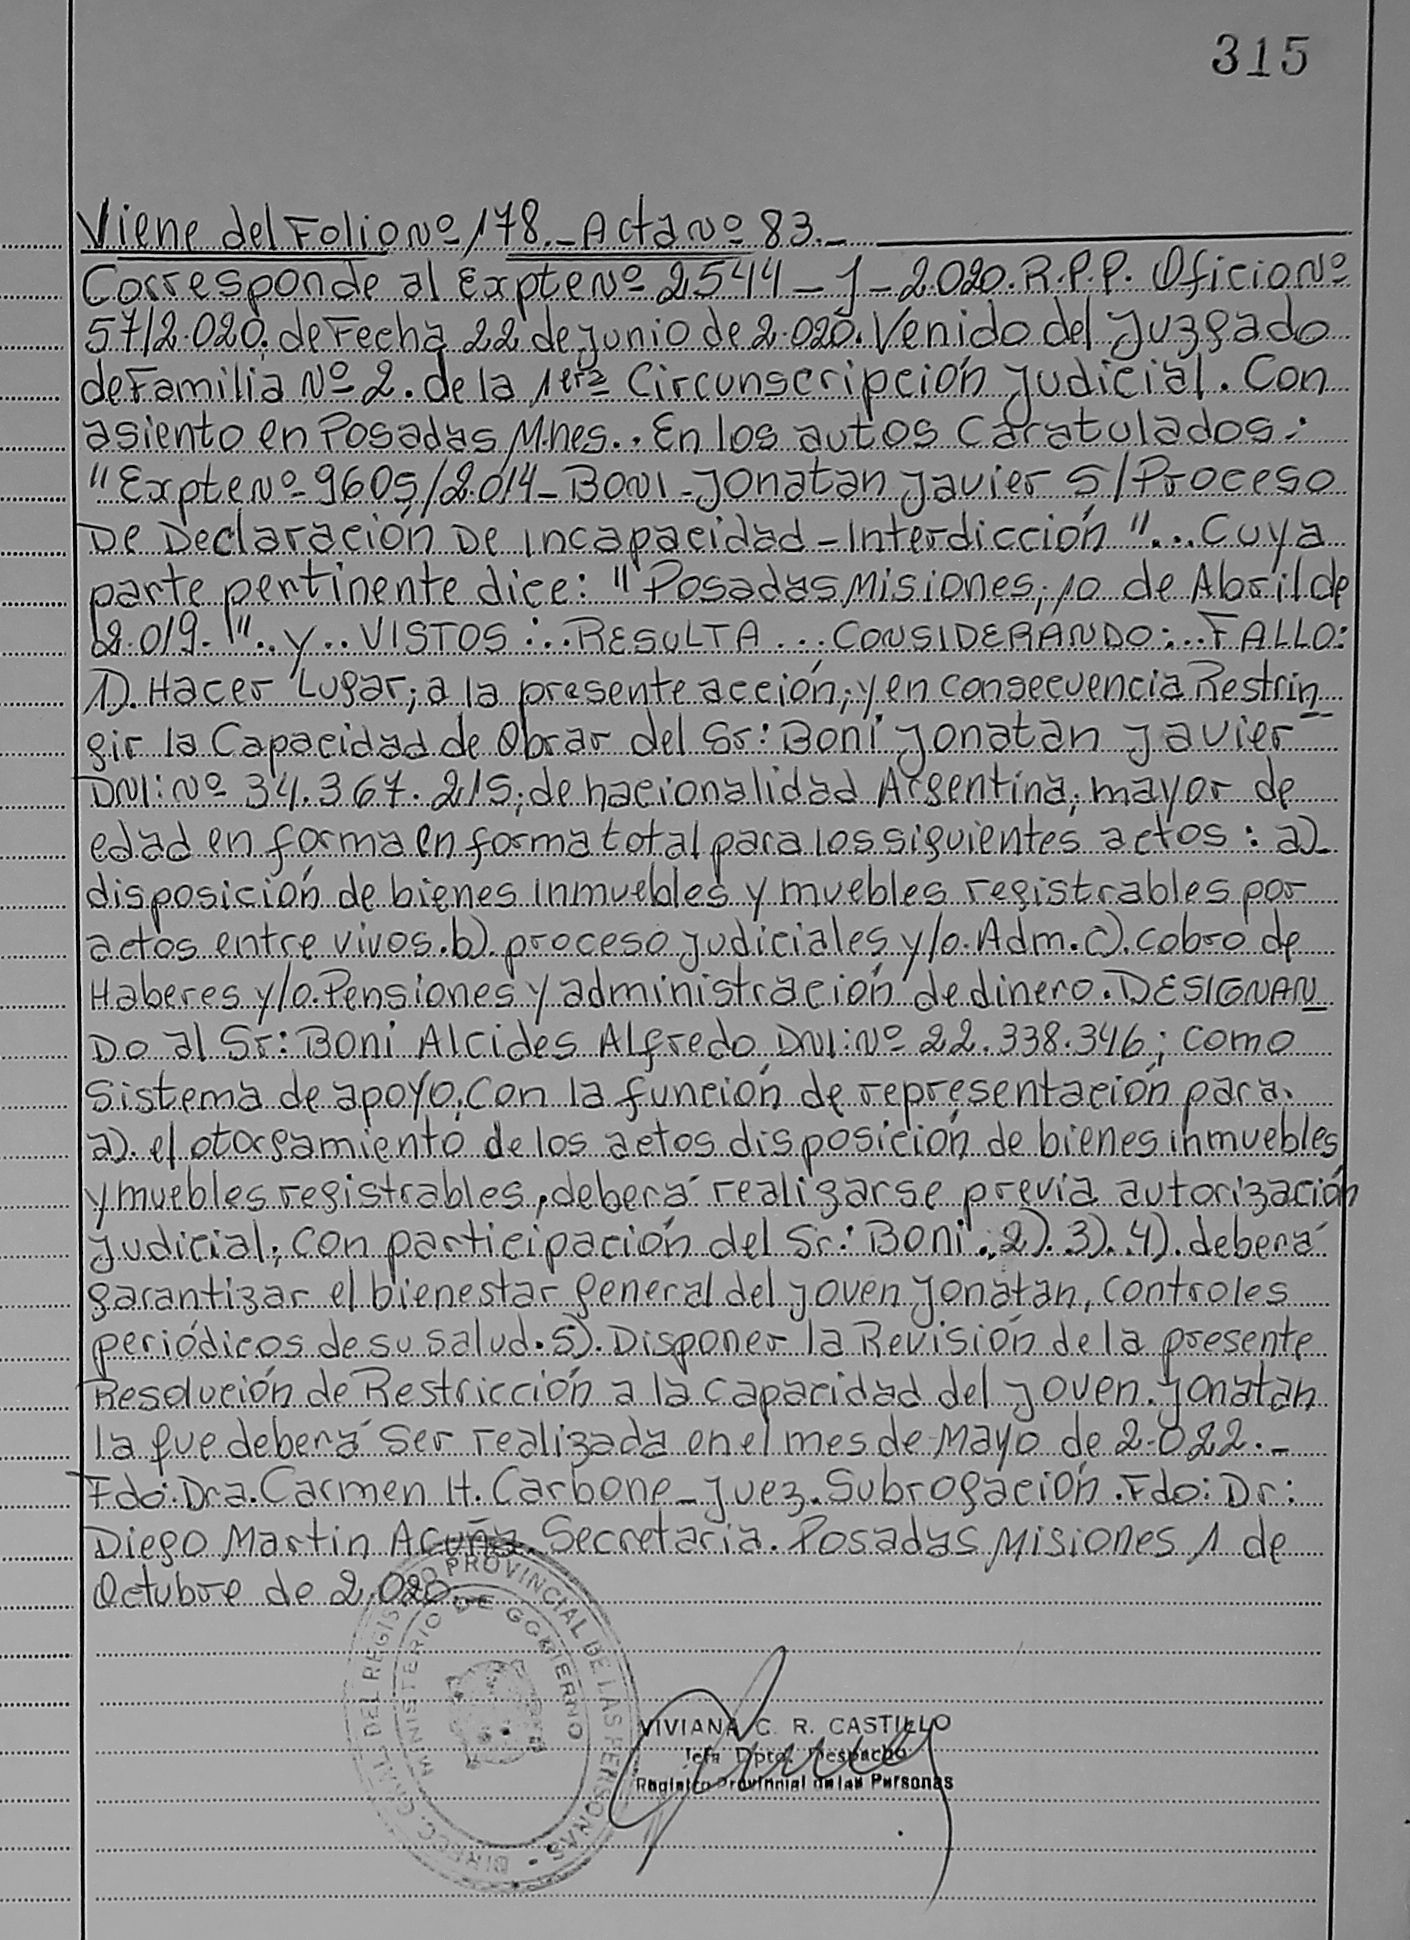 315
Viene del Folio Nº 178._ Acta Nº 83._
Corresponde al Expte Nº 2544_J_2.020. R.P.P. Oficio Nº
57/2.020. de Fecha 22 de junio de 2.020. Venido del Juzgado
de Familia Nº 2. de la 1era Circunscripción Judicial. Con
asiento en Posadas Mnes.. En los autos Caratulados:
"Expte Nº 9605/2.014_BONI_Jonatan Javier S/Proceso
De Declaración De Incapacidad_Interdicción"... Cuya
parte pertinente dice: "Posadas Misiones, 10 de Abril de
2.019."..y..VISTOS:..RESULTA...CONSIDERANDO:..FALLO:
1). Hacer Lugar; a la presente acción; y en consecuencia Restrin
gir la Capacidad de Obrar del Sr: Boni Jonatan Javier
DNI: Nº 34.367.215; de nacionalidad Argentina, mayor de
edad en forma en forma total para los siguientes actos: a)_
disposición de bienes inmuebles y muebles registrables por
actos entre vivos. b). proceso judiciales y/o. Adm. c). cobro de
Haberes y/o. Pensiones y administración de dinero. DESIGNAN
Do al Sr: Boni Alcides Alfredo DNI: Nº 22.338.346; como
Sistema de apoyo, Con la función de representación para.
a). el otorgamiento de los actos disposición de bienes inmuebles
y muebles registrables, deberá realizarse previa autorización
judicial; con participación del Sr: Boni.; 2). 3). 4). deberá
garantizar el bienestar general del joven Jonatan, controles
periódicos de su salud. 5). Disponer la Revisión de la presente
Resolución de Restricción a la capacidad del joven. Jonatan
la que deberá ser realizada en el mes de Mayo de 2.022._
Fdo: Dra. Carmen H. Carbone_Juez. Subrogación. Fdo: Dr:
Diego Martin Acuña. Secretaria. Posadas Misiones 1 de
Octubre de 2.020.
DIREC. GRAL. DEL REGISTRO PROVINCIAL DE LAS PERSONAS
MINISTERIO DE GOBIERNO
VIVIANA C. R. CASTILLO
Jefa Dpto. Despacho
Registro Provincial de las Personas